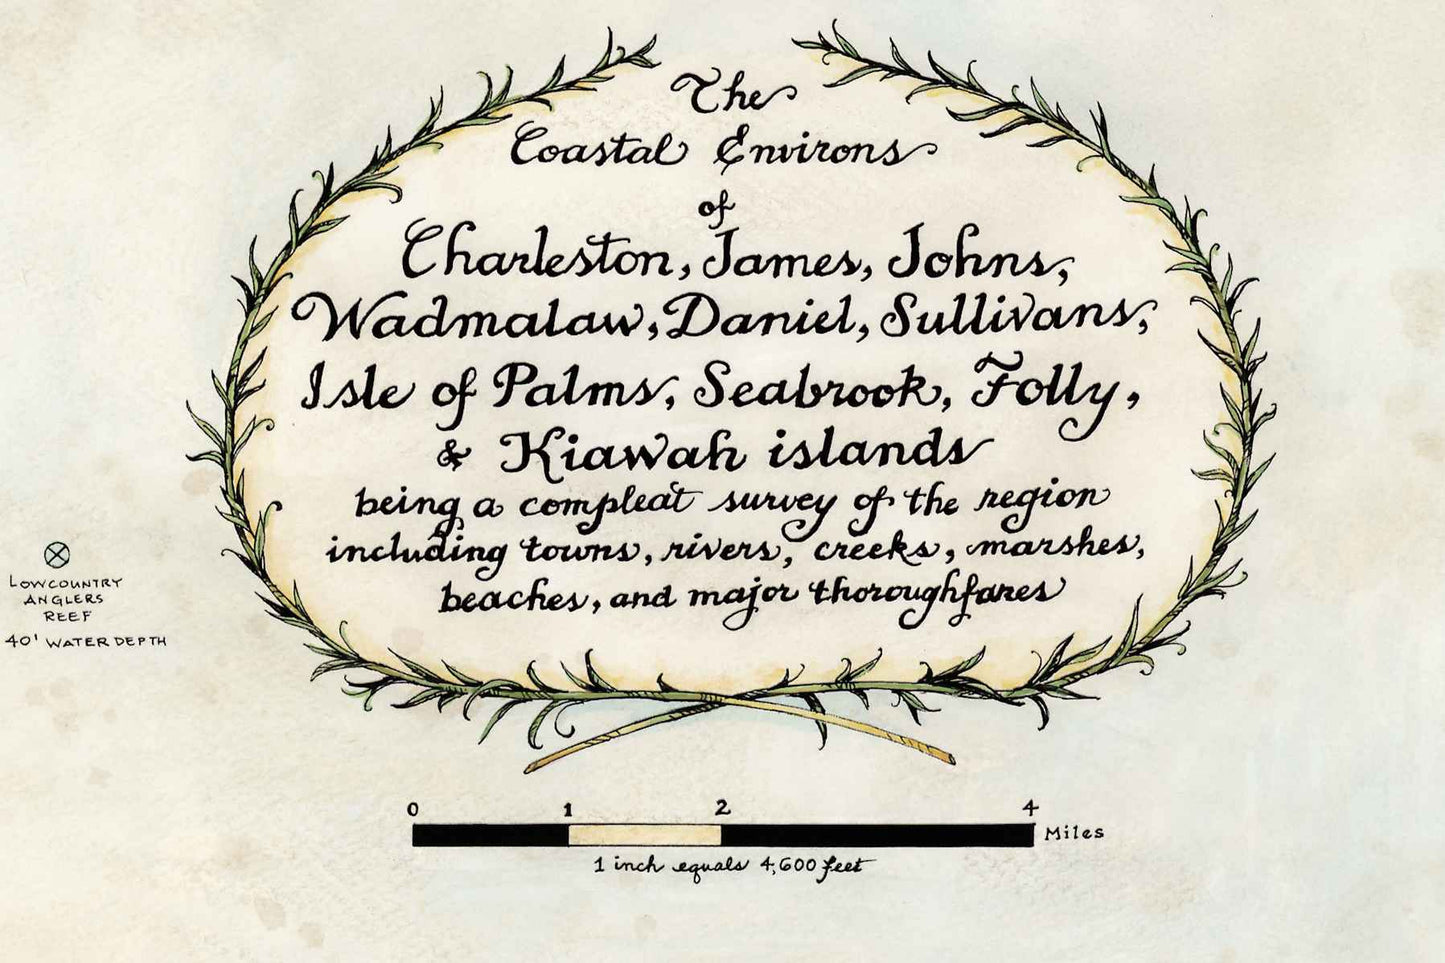 The
Coastal Environs
of
Charleston, James, Johns,
Wadmalaw, Daniel, Sullivans,
Isle of Palms, Seabrook, Folly,
& Kiawah islands
being a compleat survey of the region
including towns, rivers, creeks, marshes,
beaches, and major thoroughfares
LOWCOUNTRY
ANGLERS
REEF
40' WATER DEPTH
0 1 2 4
Miles
1 inch equals 4,600 feet